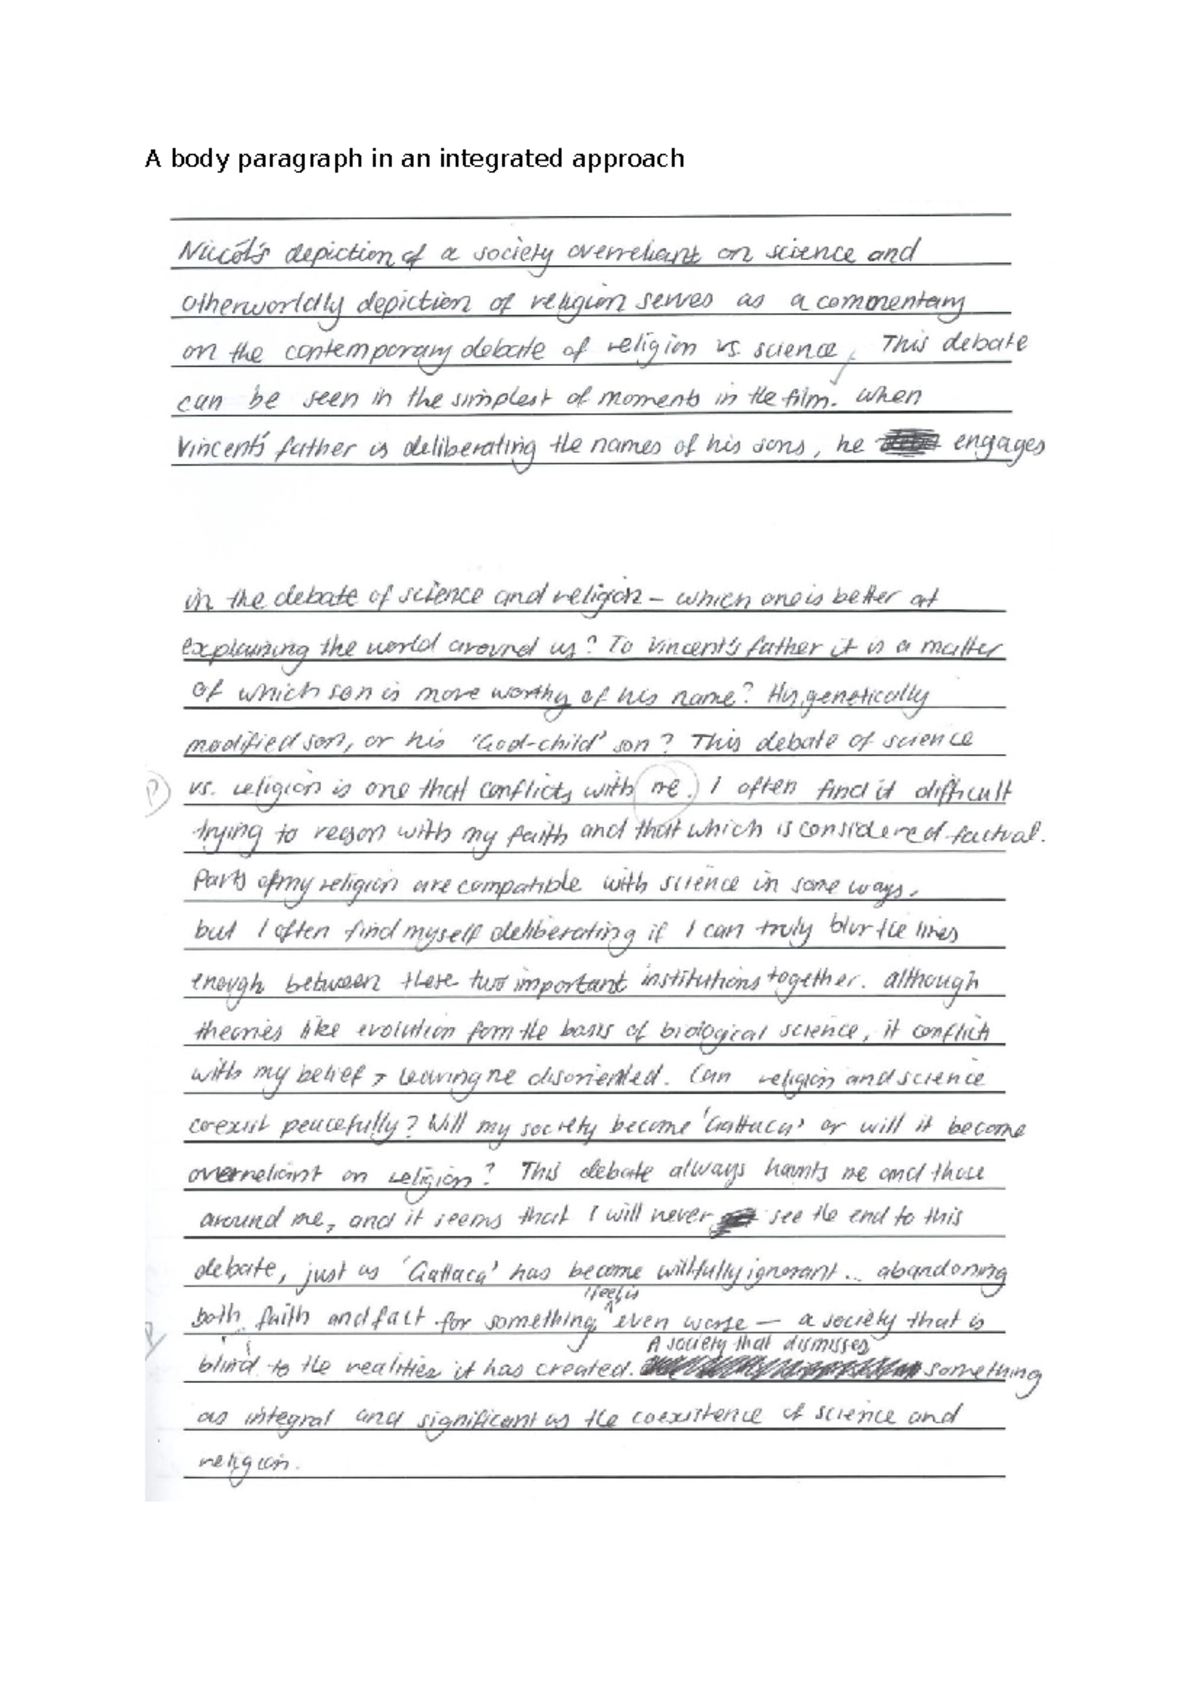 A body paragraph in an integrated approach
Niccol's depiction of a society overreliant on science and
otherworldly depiction of religion serves as a commentary
on the contemporary debate of religion vs. science. This debate
can be seen in the simplest of moments in the film. When
Vincent's father is deliberating the names of his sons, he engages
in the debate of science and religion – which one is better at
explaining the world around us? To Vincent's father it is a matter
of which son is more worthy of his name? His genetically
modified son, or his 'God-child' son? This debate of science
vs. religion is one that conflicts with me. I often find it difficult
trying to reason with my faith and that which is considered factual.
Parts of my religion are compatible with science in some ways,
but I often find myself deliberating if I can truly blur the lines
enough between these two important institutions together. although
theories like evolution form the basis of biological science, it conflicts
with my belief, leaving me disoriented. Can religion and science
coexist peacefully? Will my society become 'Gattaca' or will it become
overreliant on religion? This debate always haunts me and those
around me, and it seems that I will never see the end to this
debate, just as 'Gattaca' has become willfully ignorant... abandoning
both faith and fact for something even worse — a society that is
blind to the realities it has created. A society that dismisses something
as integral and significant as the coexistence of science and
religion.